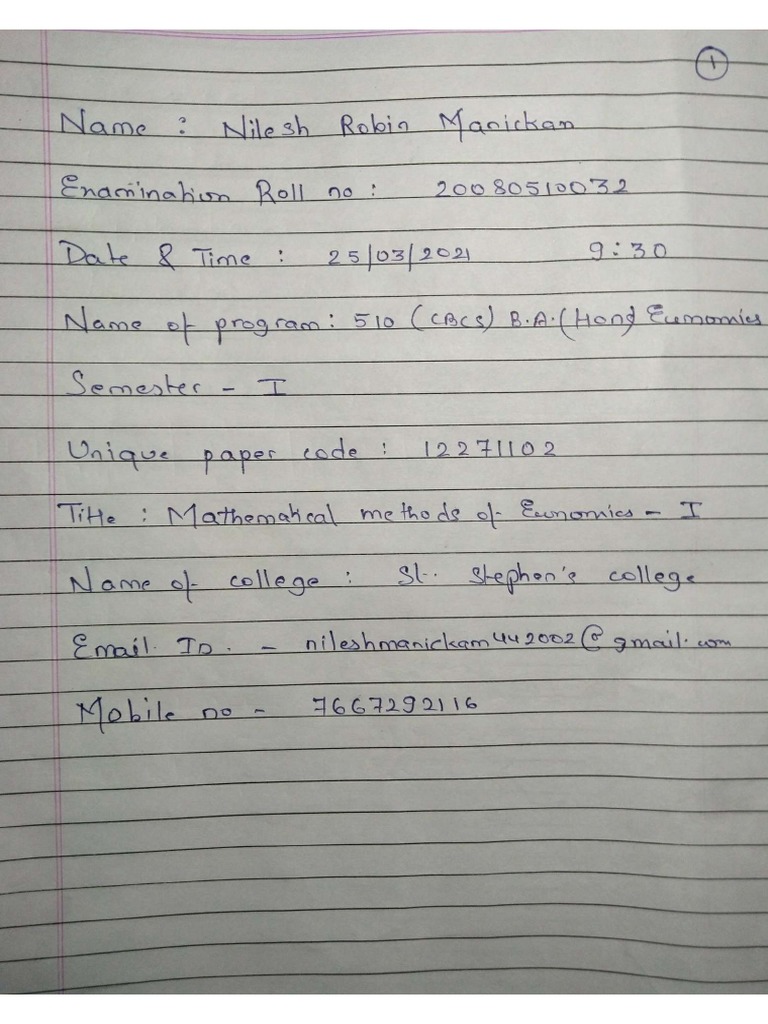 1
Name : Nilesh Robin Manickam
Examination Roll no : 20080510032
Date & Time : 25/03/2021 9:30
Name of program : 510 (CBCS) B.A. (Hons) Economics
Semester - I
Unique paper code : 12271102
Title : Mathematical methods of Economics - I
Name of college : St. Stephen's college
Email ID. - nileshmanickam442002@gmail.com
Mobile no - 7667292116